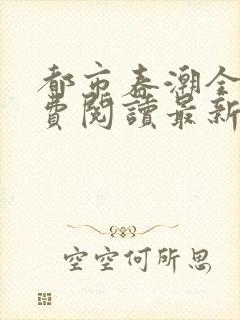 都市春潮全
費閱讀最新
空空何所思